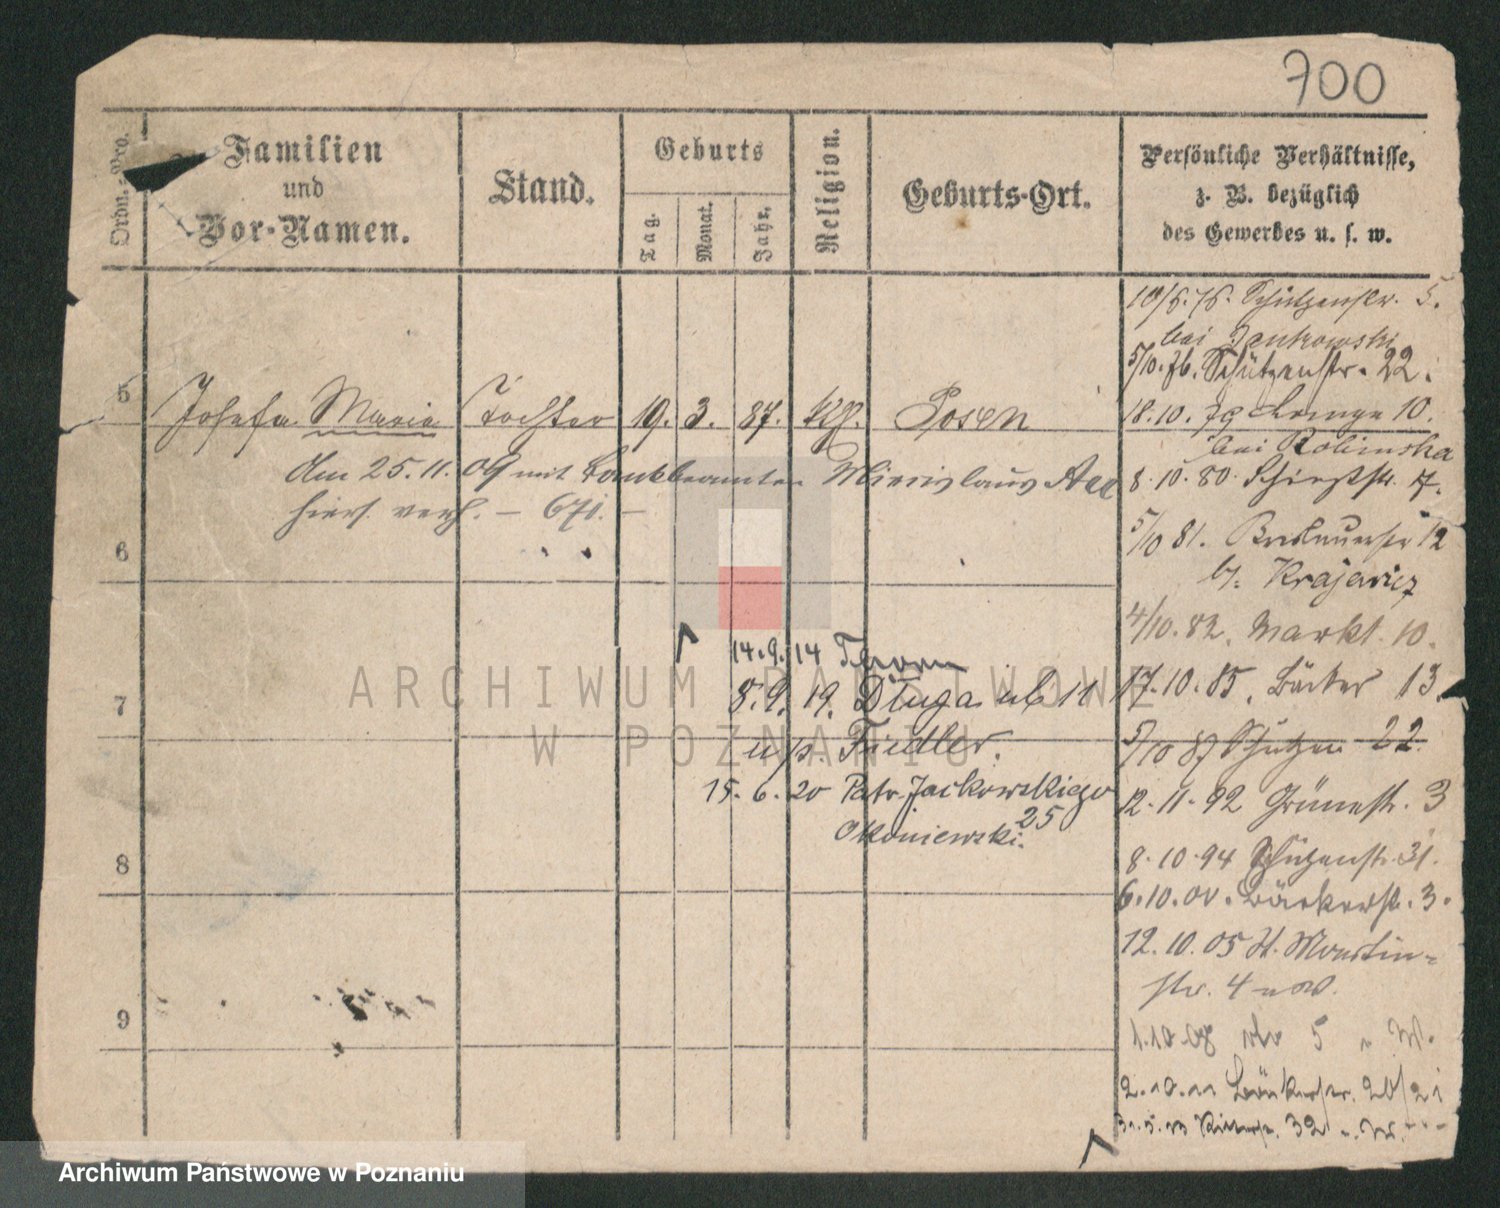 700
Ordn.-Nro.
Familien
und
Vor-Namen.
Stand.
Geburts
Tag.
Monat.
Jahr.
Religion.
Geburts-Ort.
Persönliche Verhältnisse,
z. B. bezüglich
des Gewerbes u. s. w.
10/6.76. Schützenstr. 5.
bei Jankowski
5/10.76. Schützenstr. 22.
5 Josefa Marie Tochter 19. 3. 87. kath. Posen
18.10.79 Lange 10.
bei Rolinska
den 25.11.09 mit Bankbeamten Miecislaus
hiers. verh. – 671. –
8.10.80. Schießstr. 7.
5/10 81. Breslauerstr 12
b. Krajewicz
6
4/10.82. Markt. 10.
14.9.14 Thorn
8.9.19. Długa ul 11
17.10.85. Bäcker 13
7
u/p. Fiedler.
5/10 87 Schützen 22.
15.6.20 Patr. Jackowskiego
25
12.11.92 Grünestr. 3
Okoniewski.
8
8.10.94 Schützenstr. 31.
6.10.00. Bäckerstr. 3.
12.10.05 St. Martin-
str. 4
9
1.10.08 5 W.
2.10.11 Bäckerstr. 20/21
31.5.13 Ritterstr. 32
ARCHIWUM PAŃSTWOWE
W POZNANIU
Archiwum Państwowe w Poznaniu